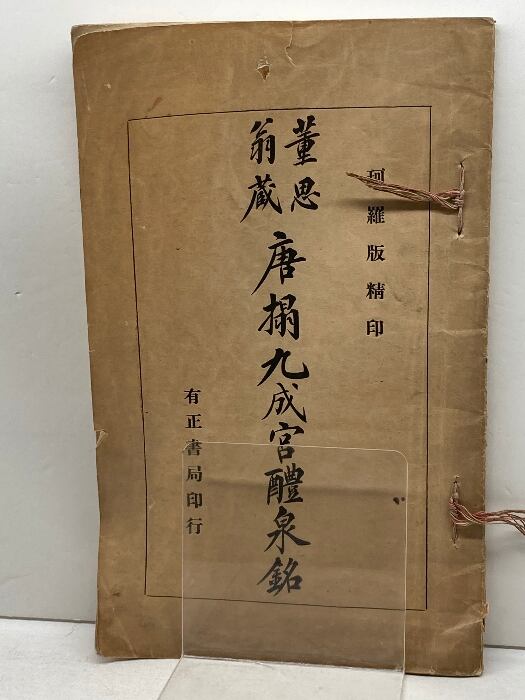 珂羅版精印
董思翁蔵
唐搨九成宮醴泉銘
有正書局印行